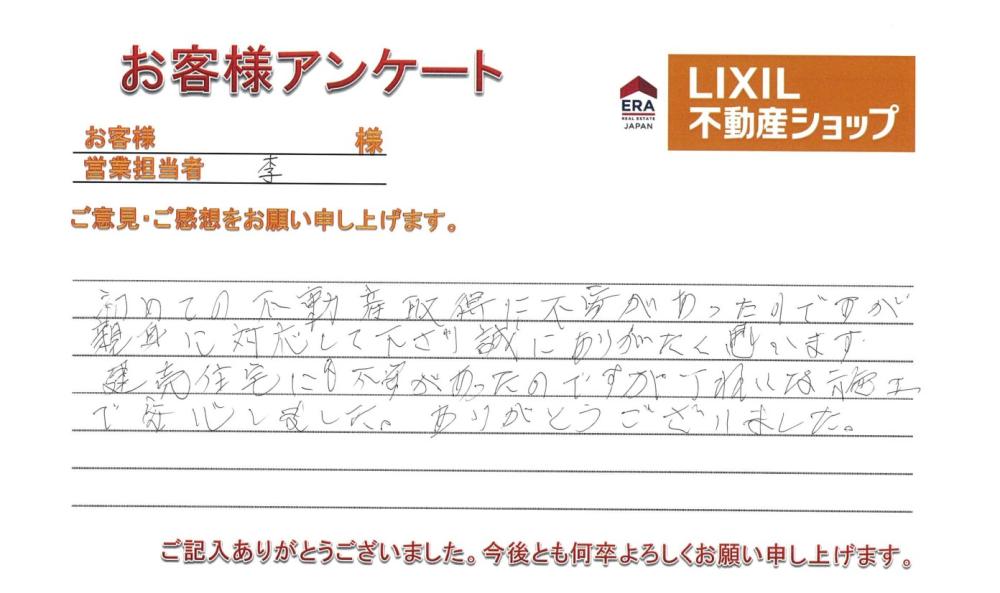 お客様アンケート
ERA
REAL ESTATE
JAPAN
LIXIL
不動産ショップ
お客様 様
営業担当者 李
ご意見・ご感想をお願い申し上げます。
初めての不動産取得に不安があったのですが
親身に対応して下さり誠にありがたく思います
建売住宅にも不安があったのですが丁ねいな施工
で安心しました。ありがとうございました。
ご記入ありがとうございました。今後とも何卒よろしくお願い申し上げます。